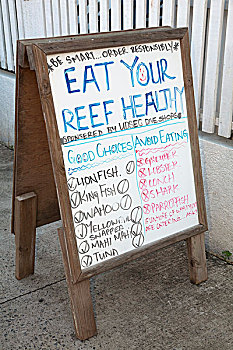 *BE SMART...ORDER RESPONSIBLY*
EAT YOUR
REEF HEALTHY
SPONSORED BY
GOOD CHOICES
AVOID EATING
LIONFISH
KING FISH
WAHOO
YELLOWTAIL
SNAPPER
MAHI MAHI
TUNA
GROUPER
LOBSTER
CONCH
SHARK
PARROTFISH